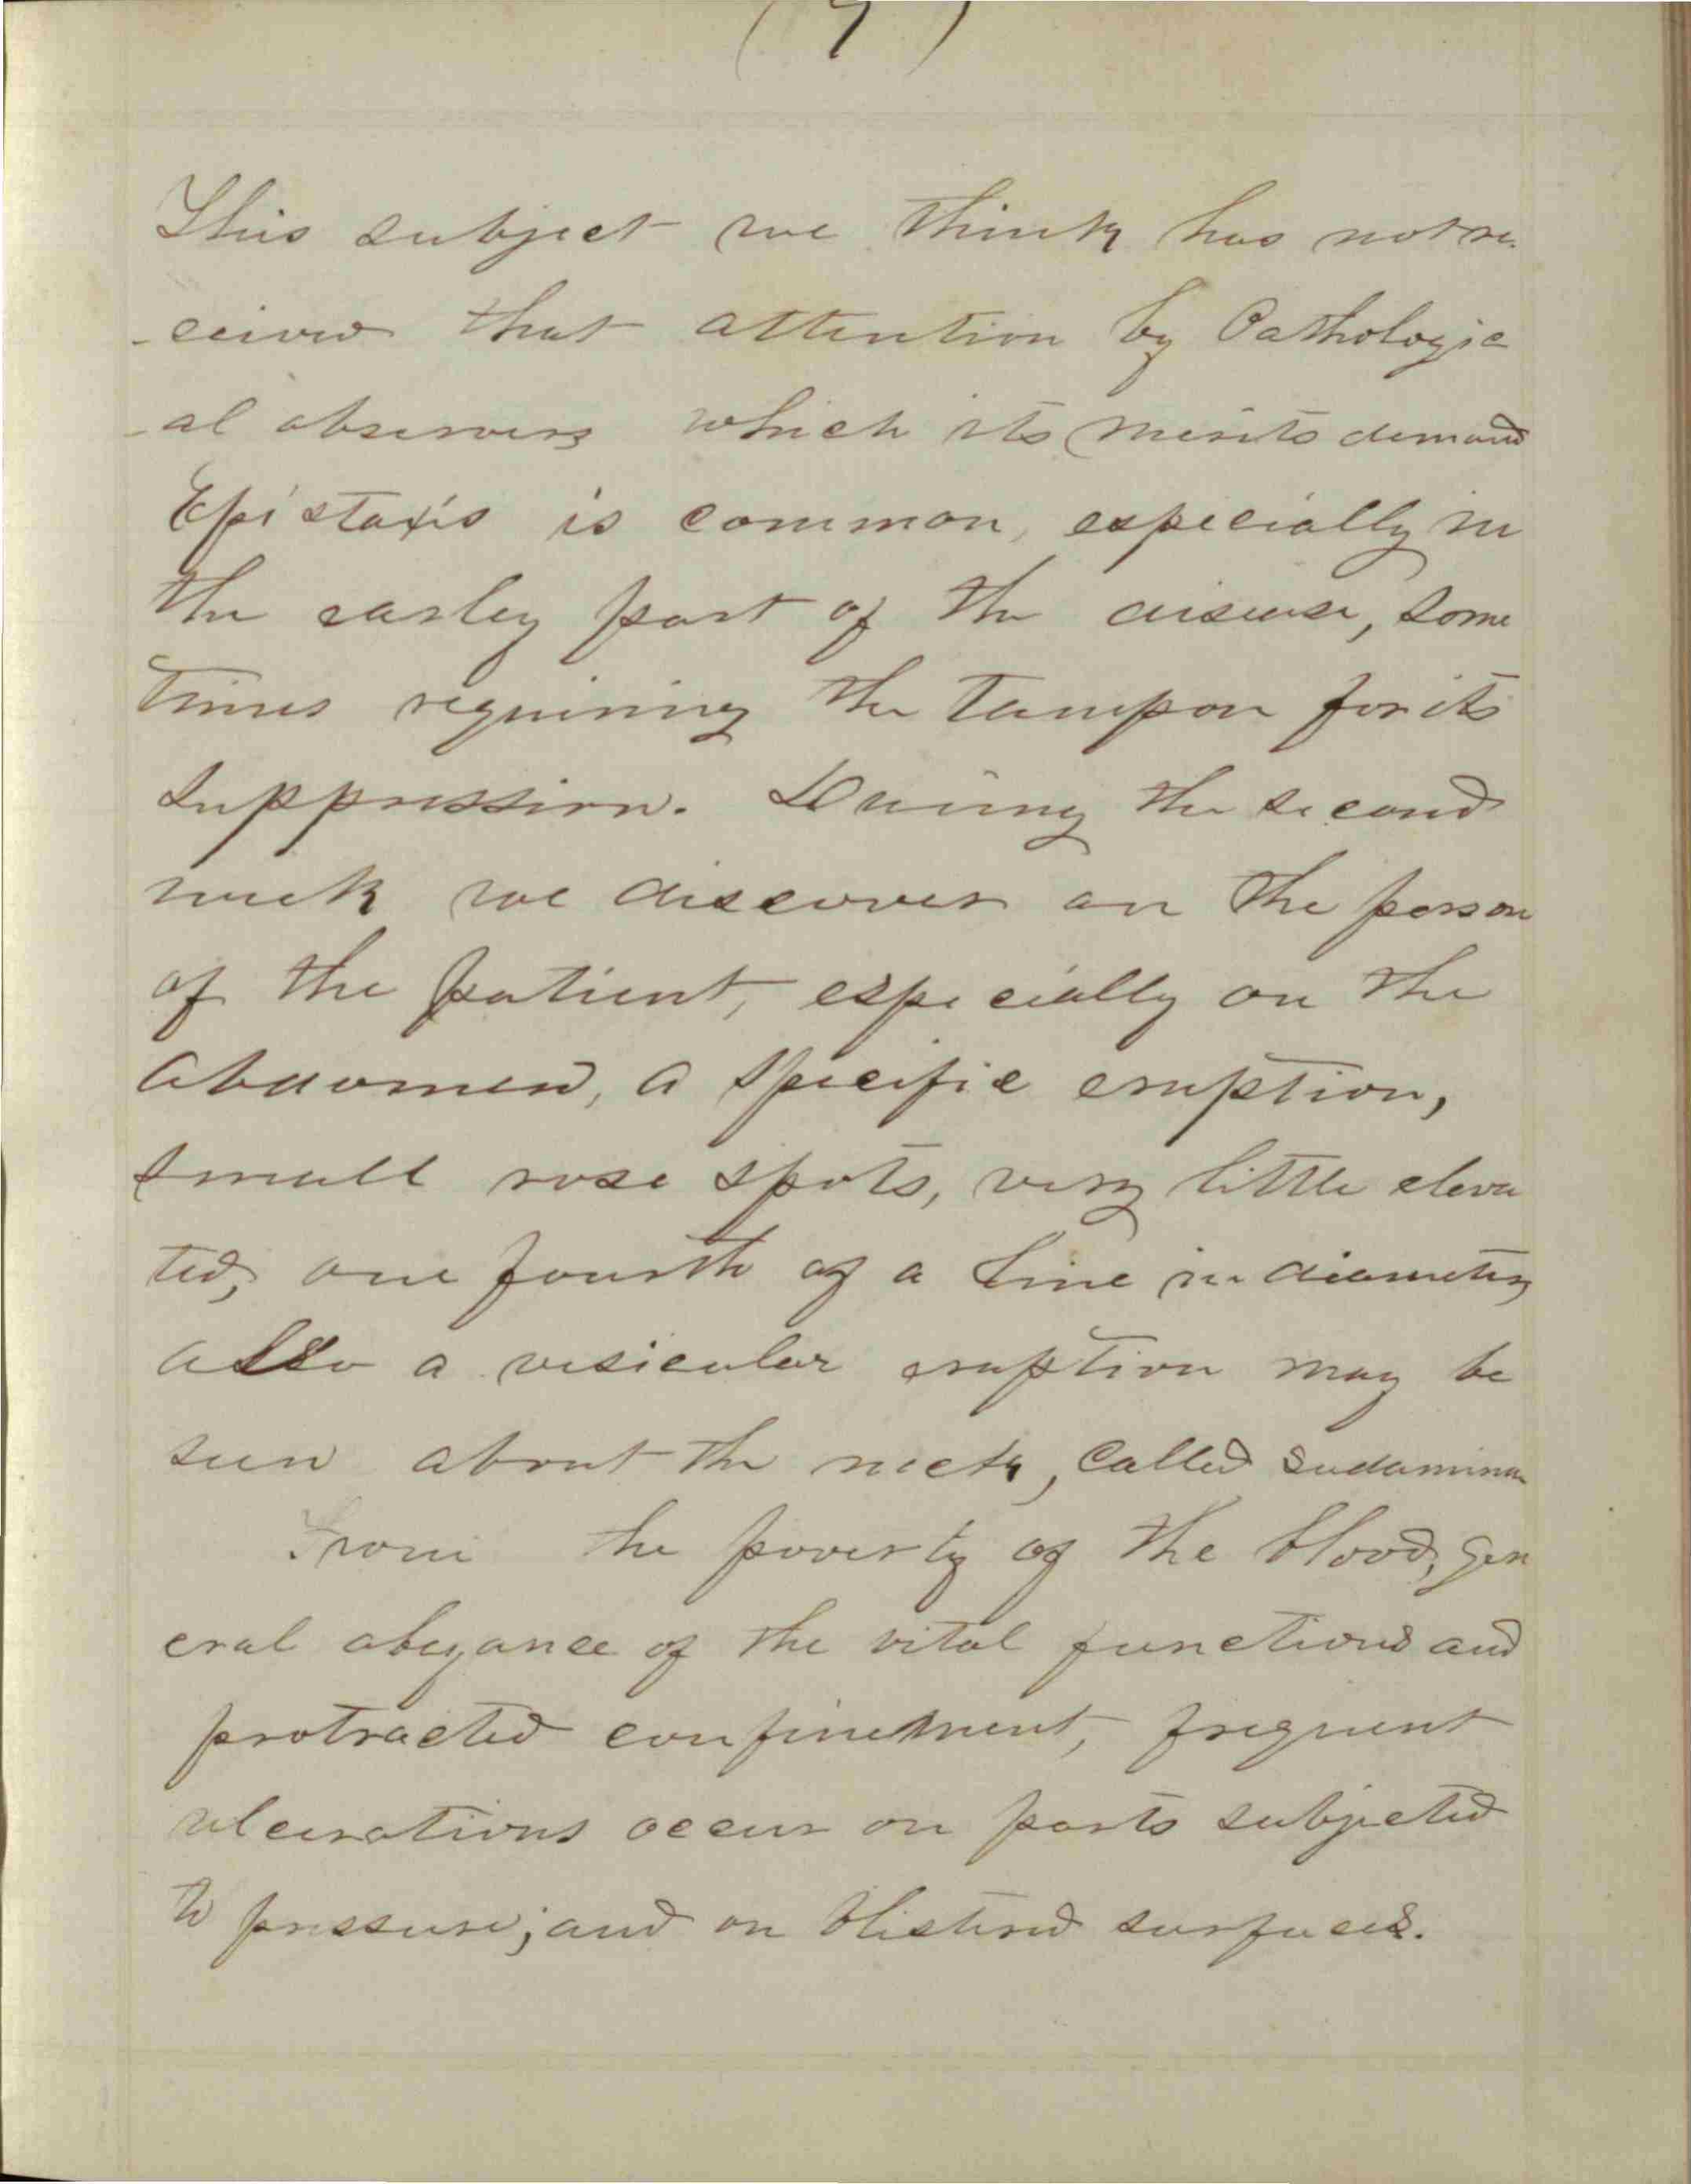 This subject we think has not re-
-ceived that attention by Pathologic
-al observers which its merits demand
Epistaxis is common, especially in
the earley part of the disease, some
times requiring the Tampon for its
suppression. During the second
week we discover on the person
of the patient, especially on the
abdomen, a specific eruption,
small rose spots, very little eleva
ted, one fourth of a line in diameter,
also a vesicular eruption may be
seen about the neck, called sudamina
From the poverty of the blood, gen
eral abeyance of the vital functions and
protracted confinement, frequent
ulcerations occur on parts subjected
to pressure; and on blistered surfaces.